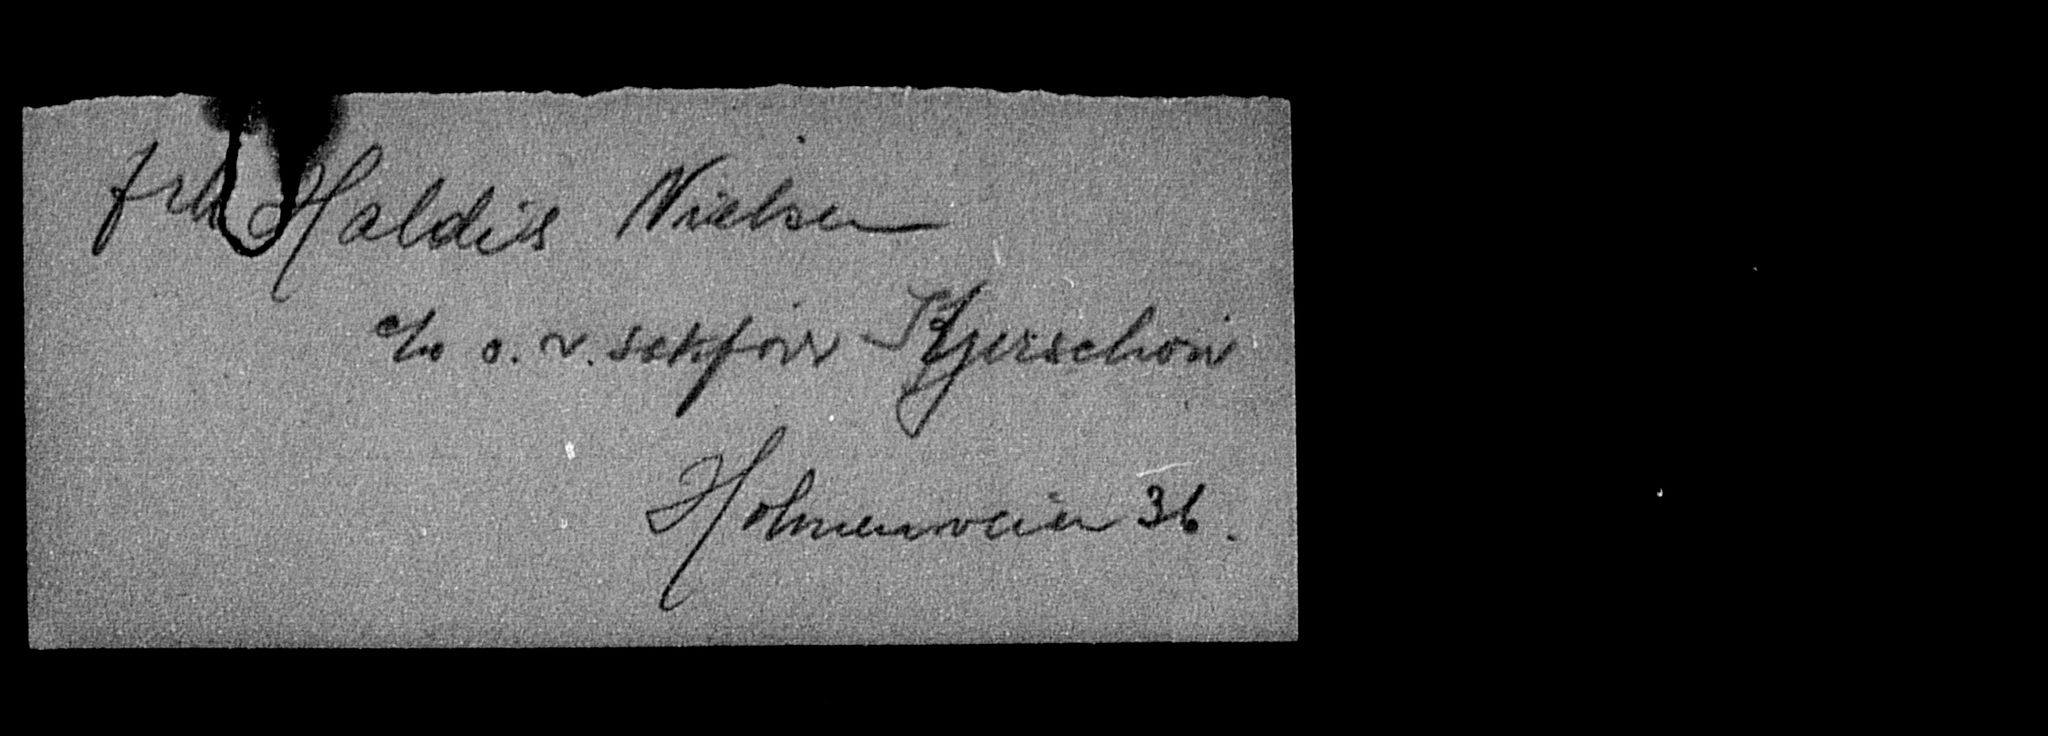 frk Haldis Nielsen
c/o o.r. sakfører Kjerschow
Holmenveien 36.